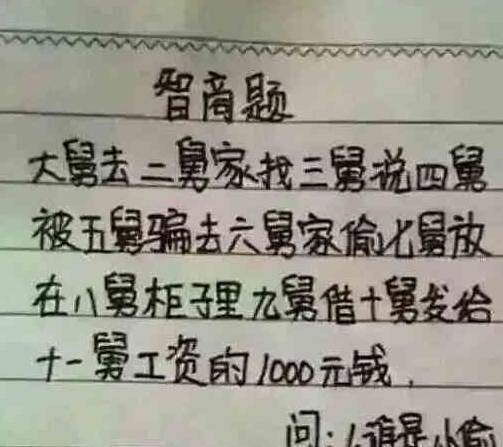 智商题
大舅去二舅家找三舅说四舅
被五舅骗去六舅家偷七舅放
在八舅柜子里九舅借十舅发给
十一舅工资的1000元钱.
问:1.谁是小偷